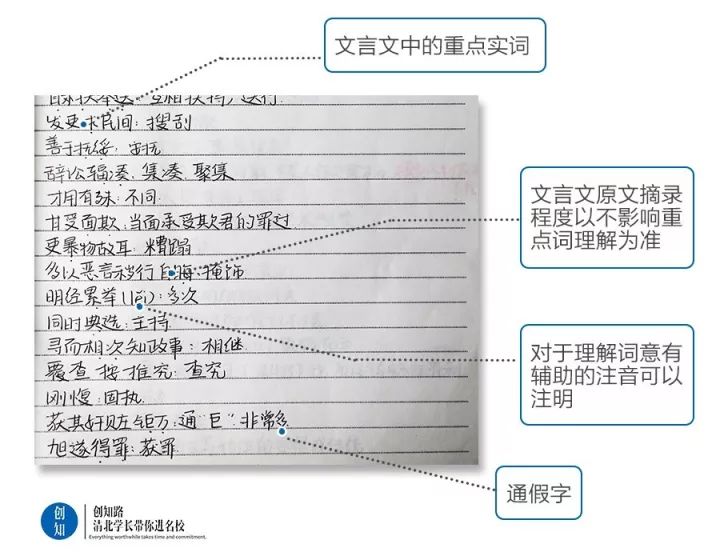 文言文中的重点实词
发吏求民间：搜刮
善于抚绥：安抚
辞讼辐凑：集凑、聚集
才用有殊：不同
甘受面欺：当面承受欺君的罪过
吏暴物故耳：糟蹋
多以恶言秽行自晦：掩饰
明经累举(lěi)：多次
同时典选：主持
寻而相次知政事：相继
覆查按推究：查究
刚愎：固执
获其奸赃钜万：通“巨”非常多
旭遂得罪：获罪
文言文原文摘录
程度以不影响重
点词理解为准
对于理解词意有
辅助的注音可以
注明
通假字
创知
创知路
清北学长带你进名校
Everything worthwhile takes time and commitment.